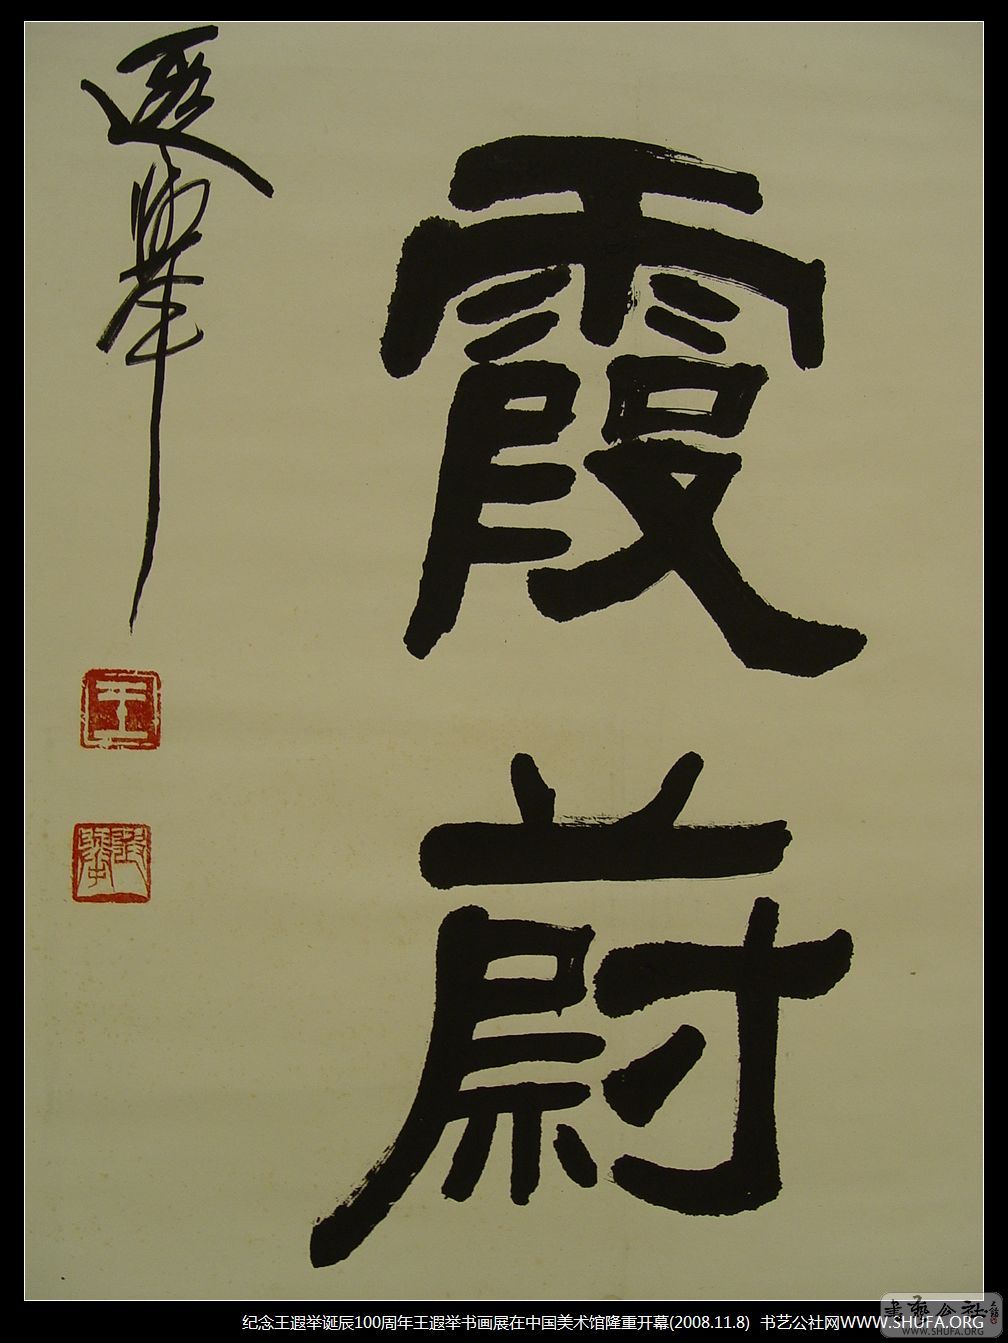 霞蔚
遐舉
王
遐舉
纪念王遐举诞辰100周年王遐举书画展在中国美术馆隆重开幕(2008.11.8) 书艺公社网WWW.SHUFA.ORG
書藝公社
WWW.SHUFA.ORG